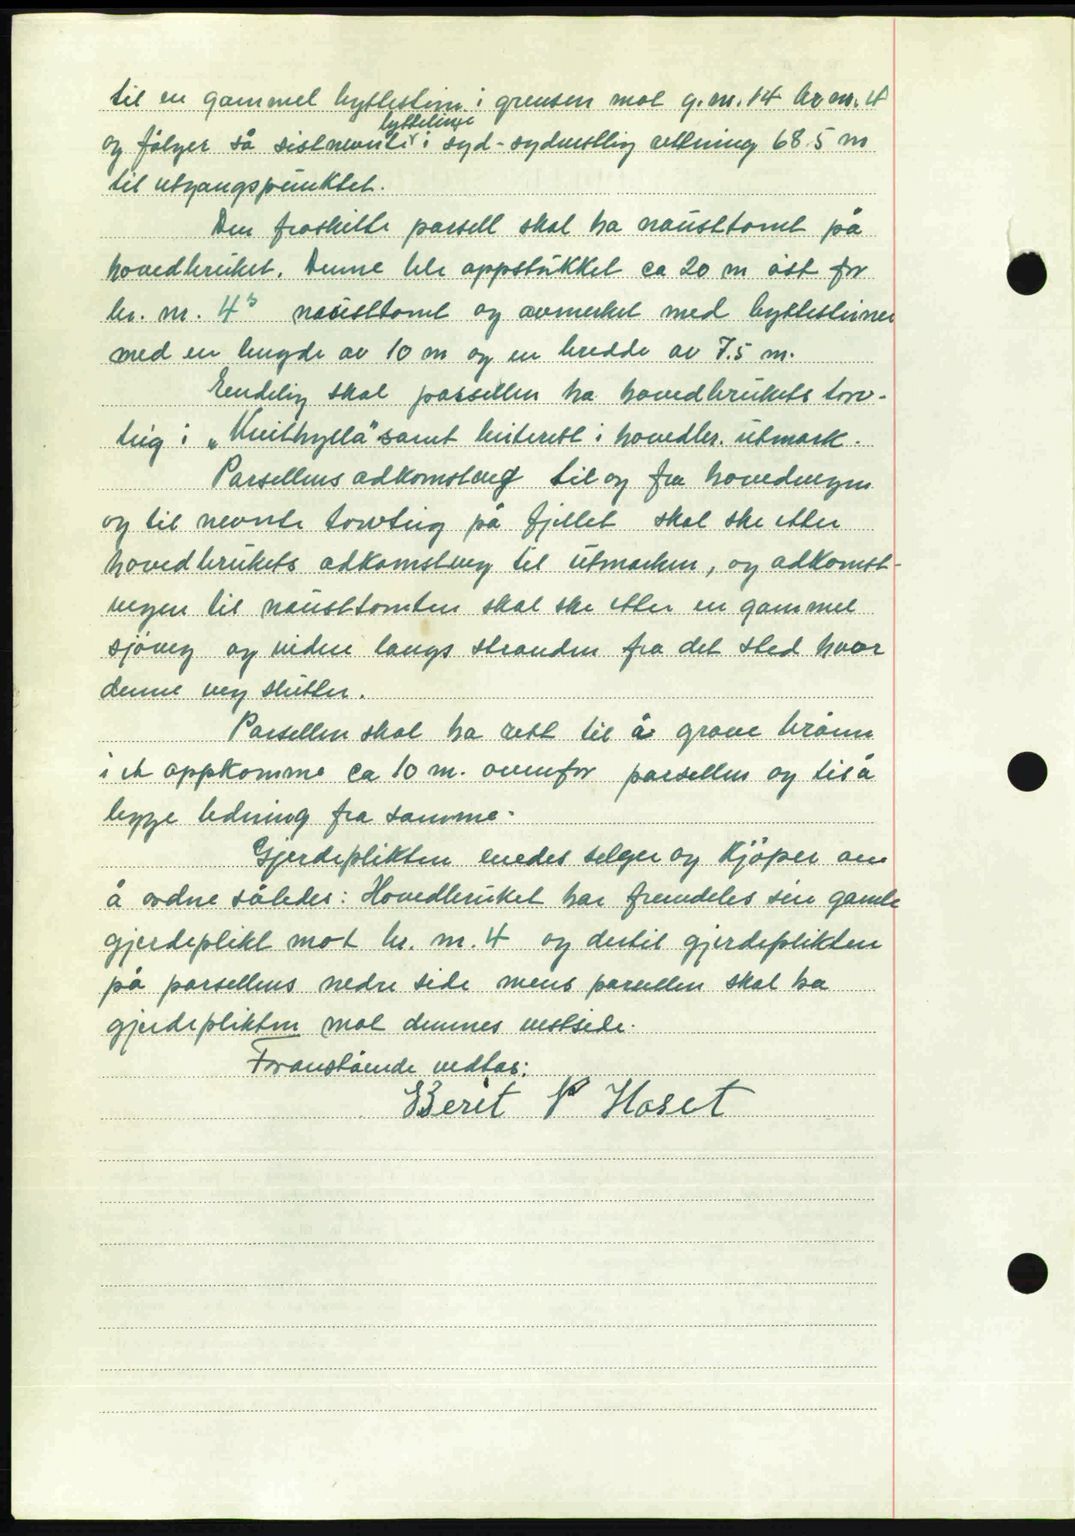 til en gammel byttestein i grensen mot g.nr. 14 br.nr. 4
og følger så sistnevnte byttelinje i syd-sydvestlig retning 68.5 m
til utgangspunktet.
Den fraskilte parsell skal ha nausttomt på
hovedbruket. Denne ble oppstukket ca 20 m øst for
br. nr. 4³ nausttomt og avmerket med byttesteiner
med en lengde av 10 m og en bredde av 7.5 m.
Endelig skal parsellen ha hovedbrukets torv-
teig i samt beiterett i hovedbr. utmark.
Parsellens adkomstveg til og fra hovedvegen
og til nevnte torvteig på fjellet skal ske etter
hovedbrukets adkomstveg til utmarken, og adkomst-
vegen til nausttomten skal ske etter en gammel
sjöveg og videre langs stranden fra det sted hvor
denne veg slutter.
Parsellen skal ha rett til å grave brönn
i et oppkomme ca 10 m. ovenfor parsellen og til å
legge ledning fra samme.
Gjerdeplikten enedes selger og kjöper om
å ordne således: Hovedbruket har fremdeles sin gamle
gjerdeplikt mot br. nr. 4 og dertil gjerdeplikten
på parsellens nedre side mens parsellen skal ha
gjerdeplikten mot dennes vestside.
Foranstående vedtas:
Berit P Hoset